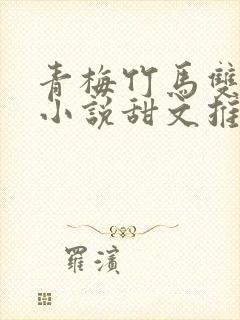 青梅竹馬雙
小說甜文推
羅濱